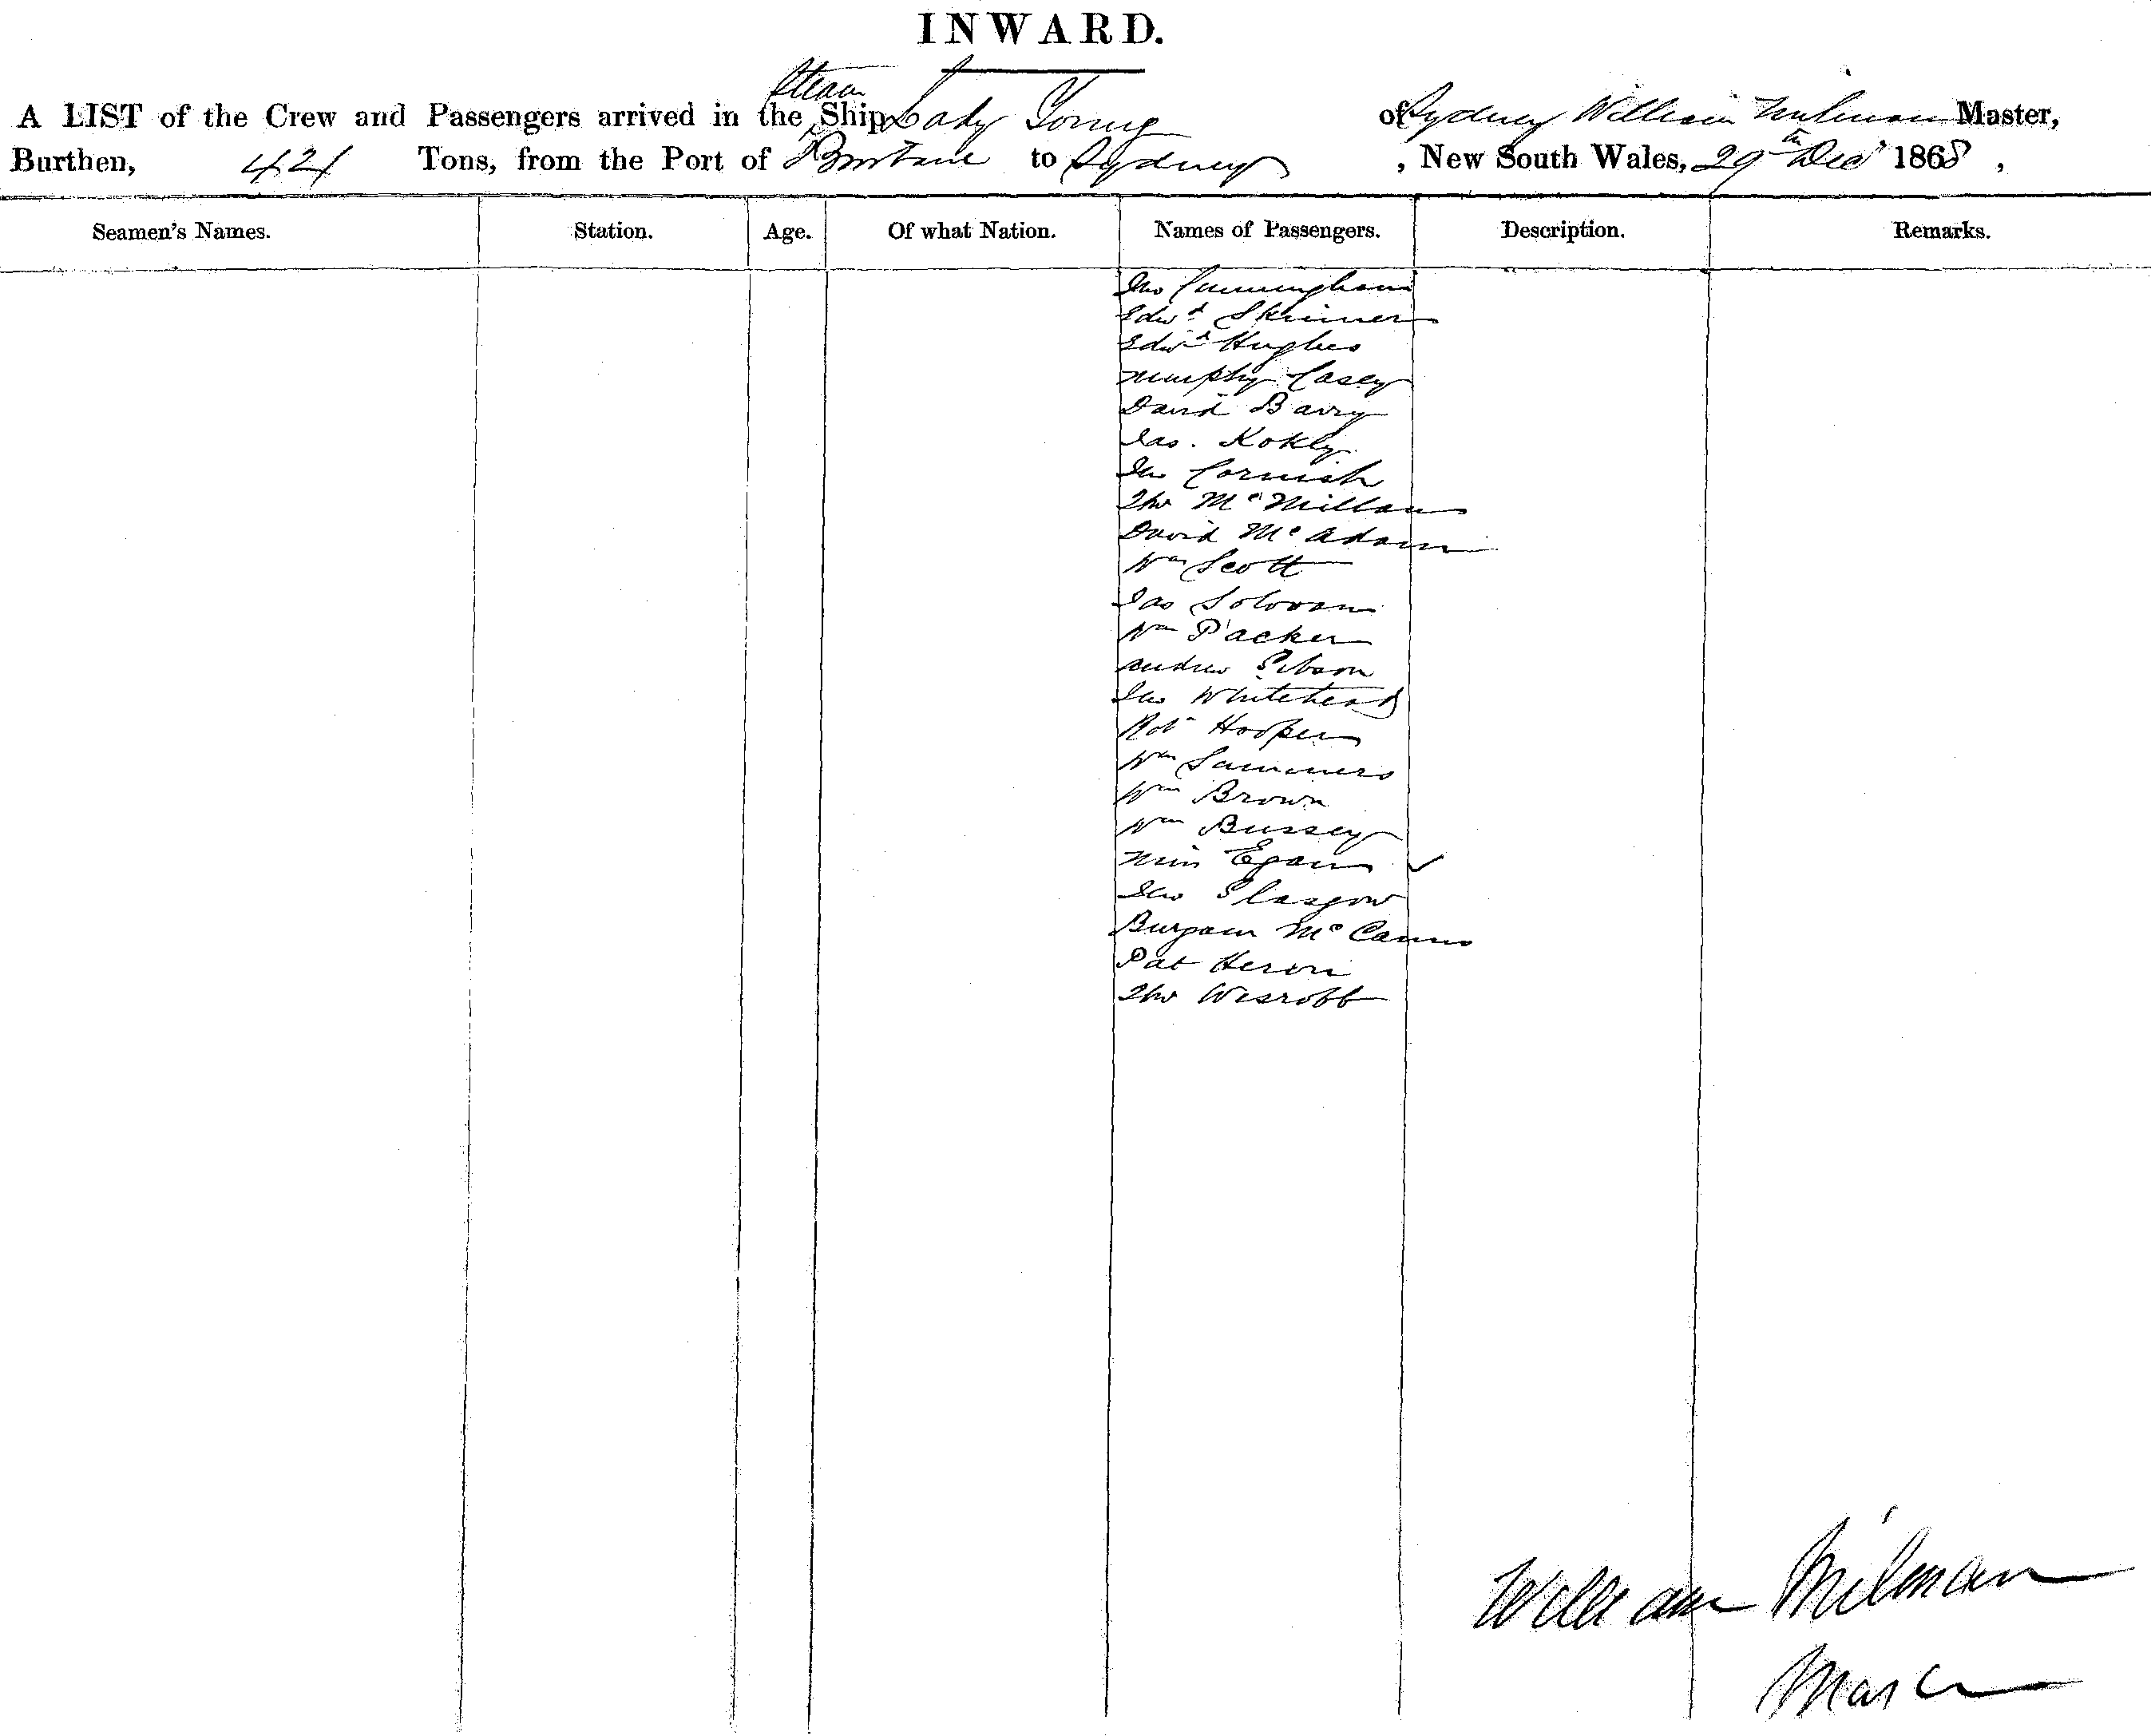 INWARD.
Steam
A LIST of the Crew and Passengers arrived in the Ship Lady Young of Sydney William Milman Master,
Burthen, 421 Tons, from the Port of Brisbane to Sydney, New South Wales, 29th Decr 1868,
Seamen's Names. Station. Age. Of what Nation. Names of Passengers. Description. Remarks.
Jno Cunningham
Edwd Skinner
Edwd Hughes
Murphy Casey
David Barry
Jas. Kokly
Jno Cornish
Tho McMillan
David McAdam
Wm Scott
Jas
Wm Packer
Andrew Gibson
Jno Whitehead
Robt Hooper
Wm Summers
Wm Brown
Wm Bussey
Egan
Jno Glasgow
McCann
Pat Heron
Tho Wesrobb
William Milman
Master